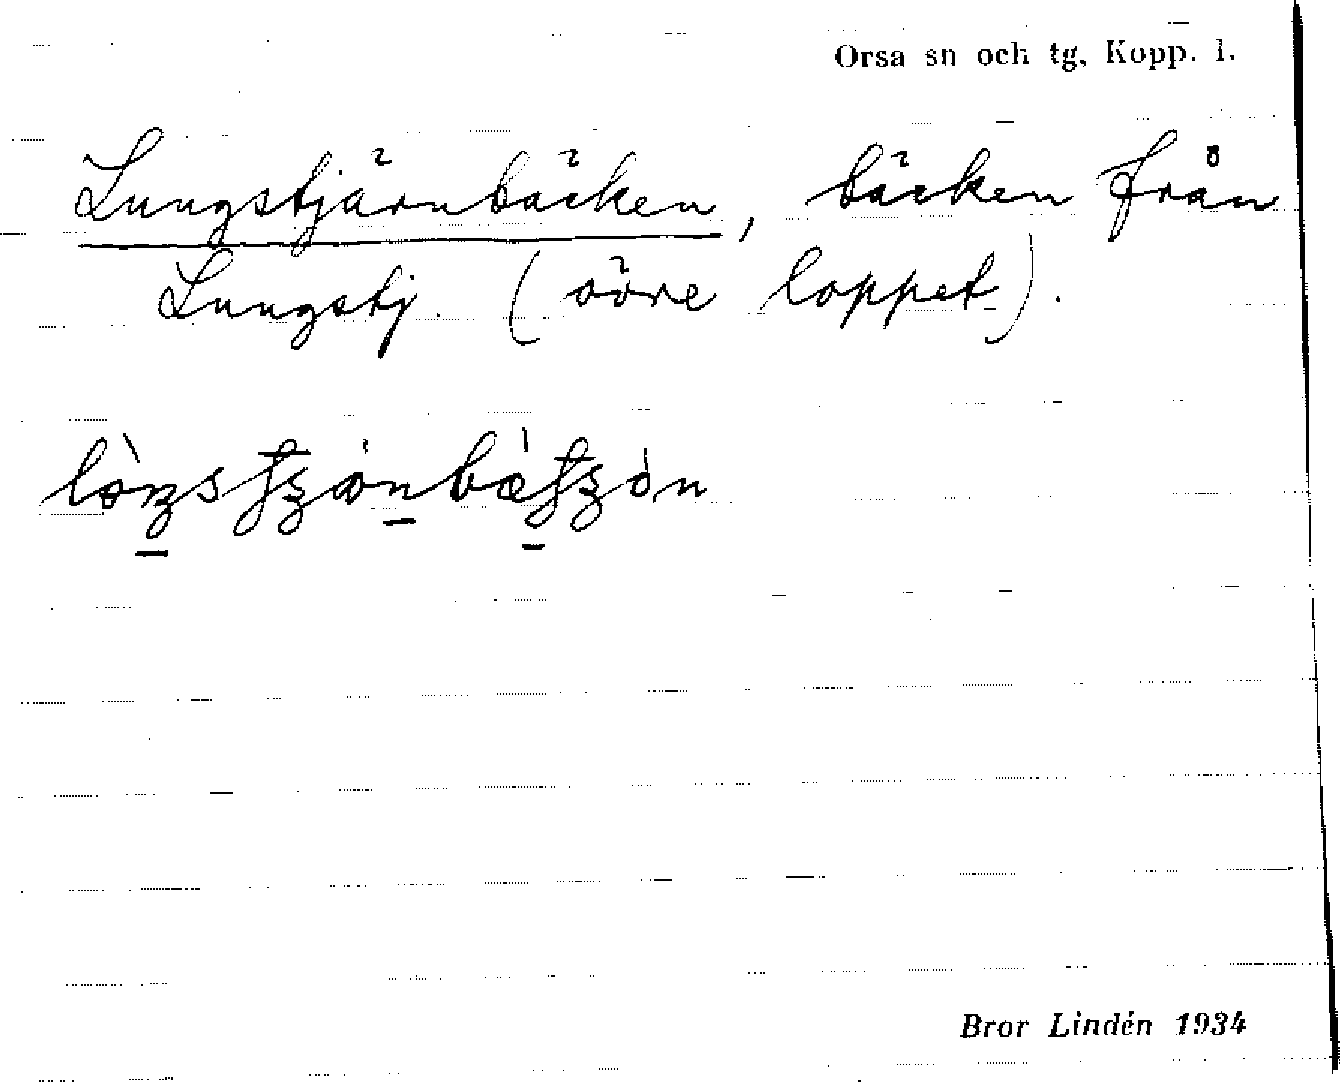 Orsa sn och tg, Kopp. l.
Lungstjärnbäcken, bäcken från
Lungstj. (övre loppet).
Bror Lindén 1934